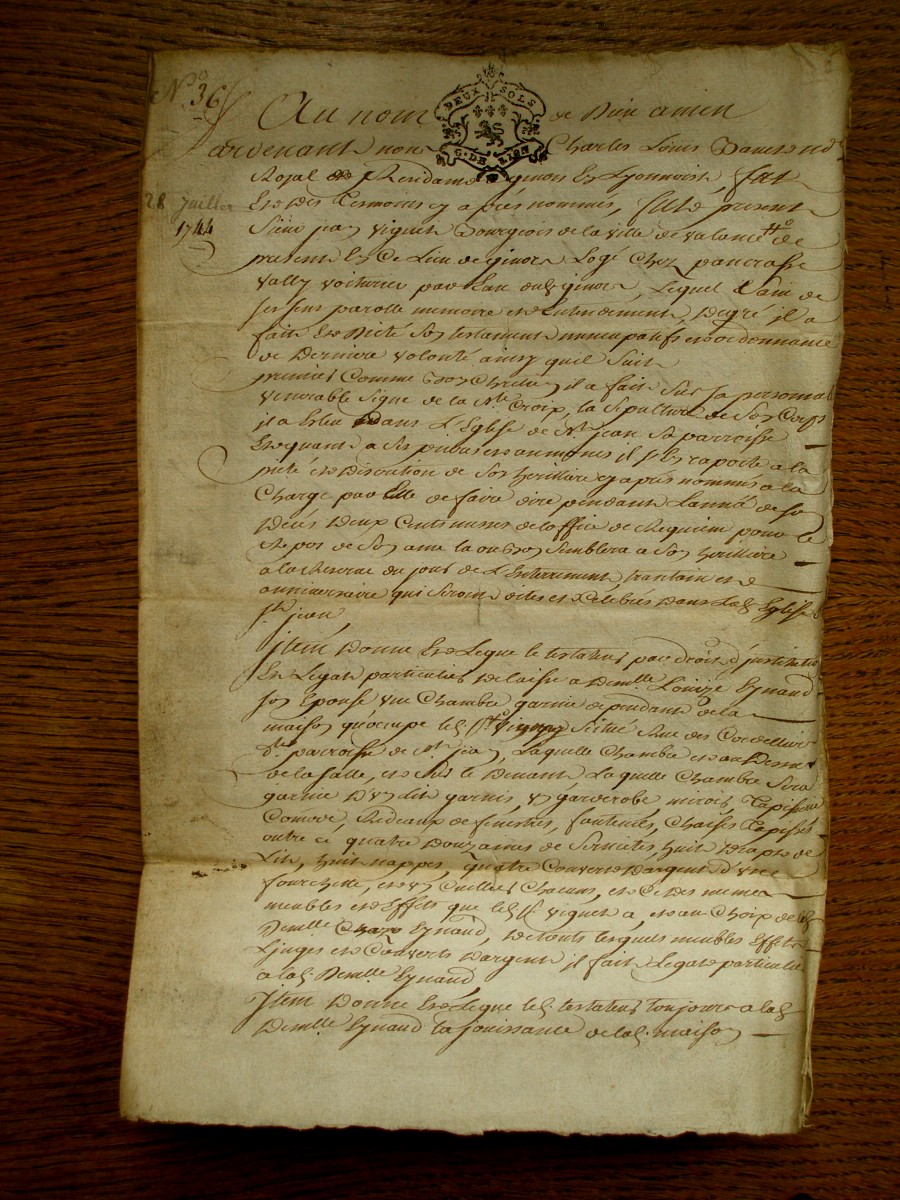 N° 36
DEUX SOLS
G. DE LYON
Au nom de Dieu amen
28 Juillet
1744
pardevant nous Charles Louis
Royal Givors en Lyonnois, fut
et des temoins cy apres nommés, fut present
Sieur jean viguet Bourgeois de la ville de valance de
present en ce Lieu de givors Logé chez pancrasse
vally voiturier par Eau aud. givors, Lequel Sain de
ses sens parolle memoire et Entendement De gré il a
fait et Dicté son testament nuncupatif et ordonnance
de Derniere volonté ainsy quil Suit
premier Comme bon Chretien il a fait Sur sa personne le
venerable Signe de la Ste Croix, la Sepulture de Son Corps
il a Esleu dans L'Eglise de St jean Sa parroisse
Et quant a Ses prieres et aumones il s'En raporte a la
pieté et Discretion de Son heritiere cy apres nommée a la
Charge par Elle de faire dire pendant Lannée de son
Décès Deux Cents messes de Loffice de Requiem pour le
Repos de Son ame la ou bon Semblera a Son heritiere
a la Reserve du jour de L'Enterrement, trantain et
anniversaire qui Seront dites et Celebrés Dans Lad. Eglise
St jean
Item Donne et Legue le testateur par droit d'institution
et Legat particulier Delaisse a Demlle Louize Eynaud
Son Epouse une Chambre garnie dependante de la
maison quocupe led. Sr viguet Sittué Rue des Cordelliers
de. parroisse de St jean, Laquelle Chambre est au Dessus
de la Salle, et sur le Devant Laquelle Chambre Sera
garnie D'un Lit garnis, un garderobe miroir, Tapisserie
Comode, Rideaux de fenestres, fauteuils, Chaises Tapissés
outre ce quatre Douzaines de Serviettes, huit Draps de
Lit, huit nappes, quatre Couverts Dargent d'une
fourchette, et un Cuillier Chacun, et Ce Des memes
meubles et Effets que led. Sr viguet a, et au Choix de lad.
Demlle Eynaud, De touts lesquels meubles Effets
Linges et Couverts Dargent il fait Legat particulier
a lad. Demlle Eynaud
Item Donne et Legue led. testateur toujours a lad.
Demlle Eynaud la jouissance de lad. maison